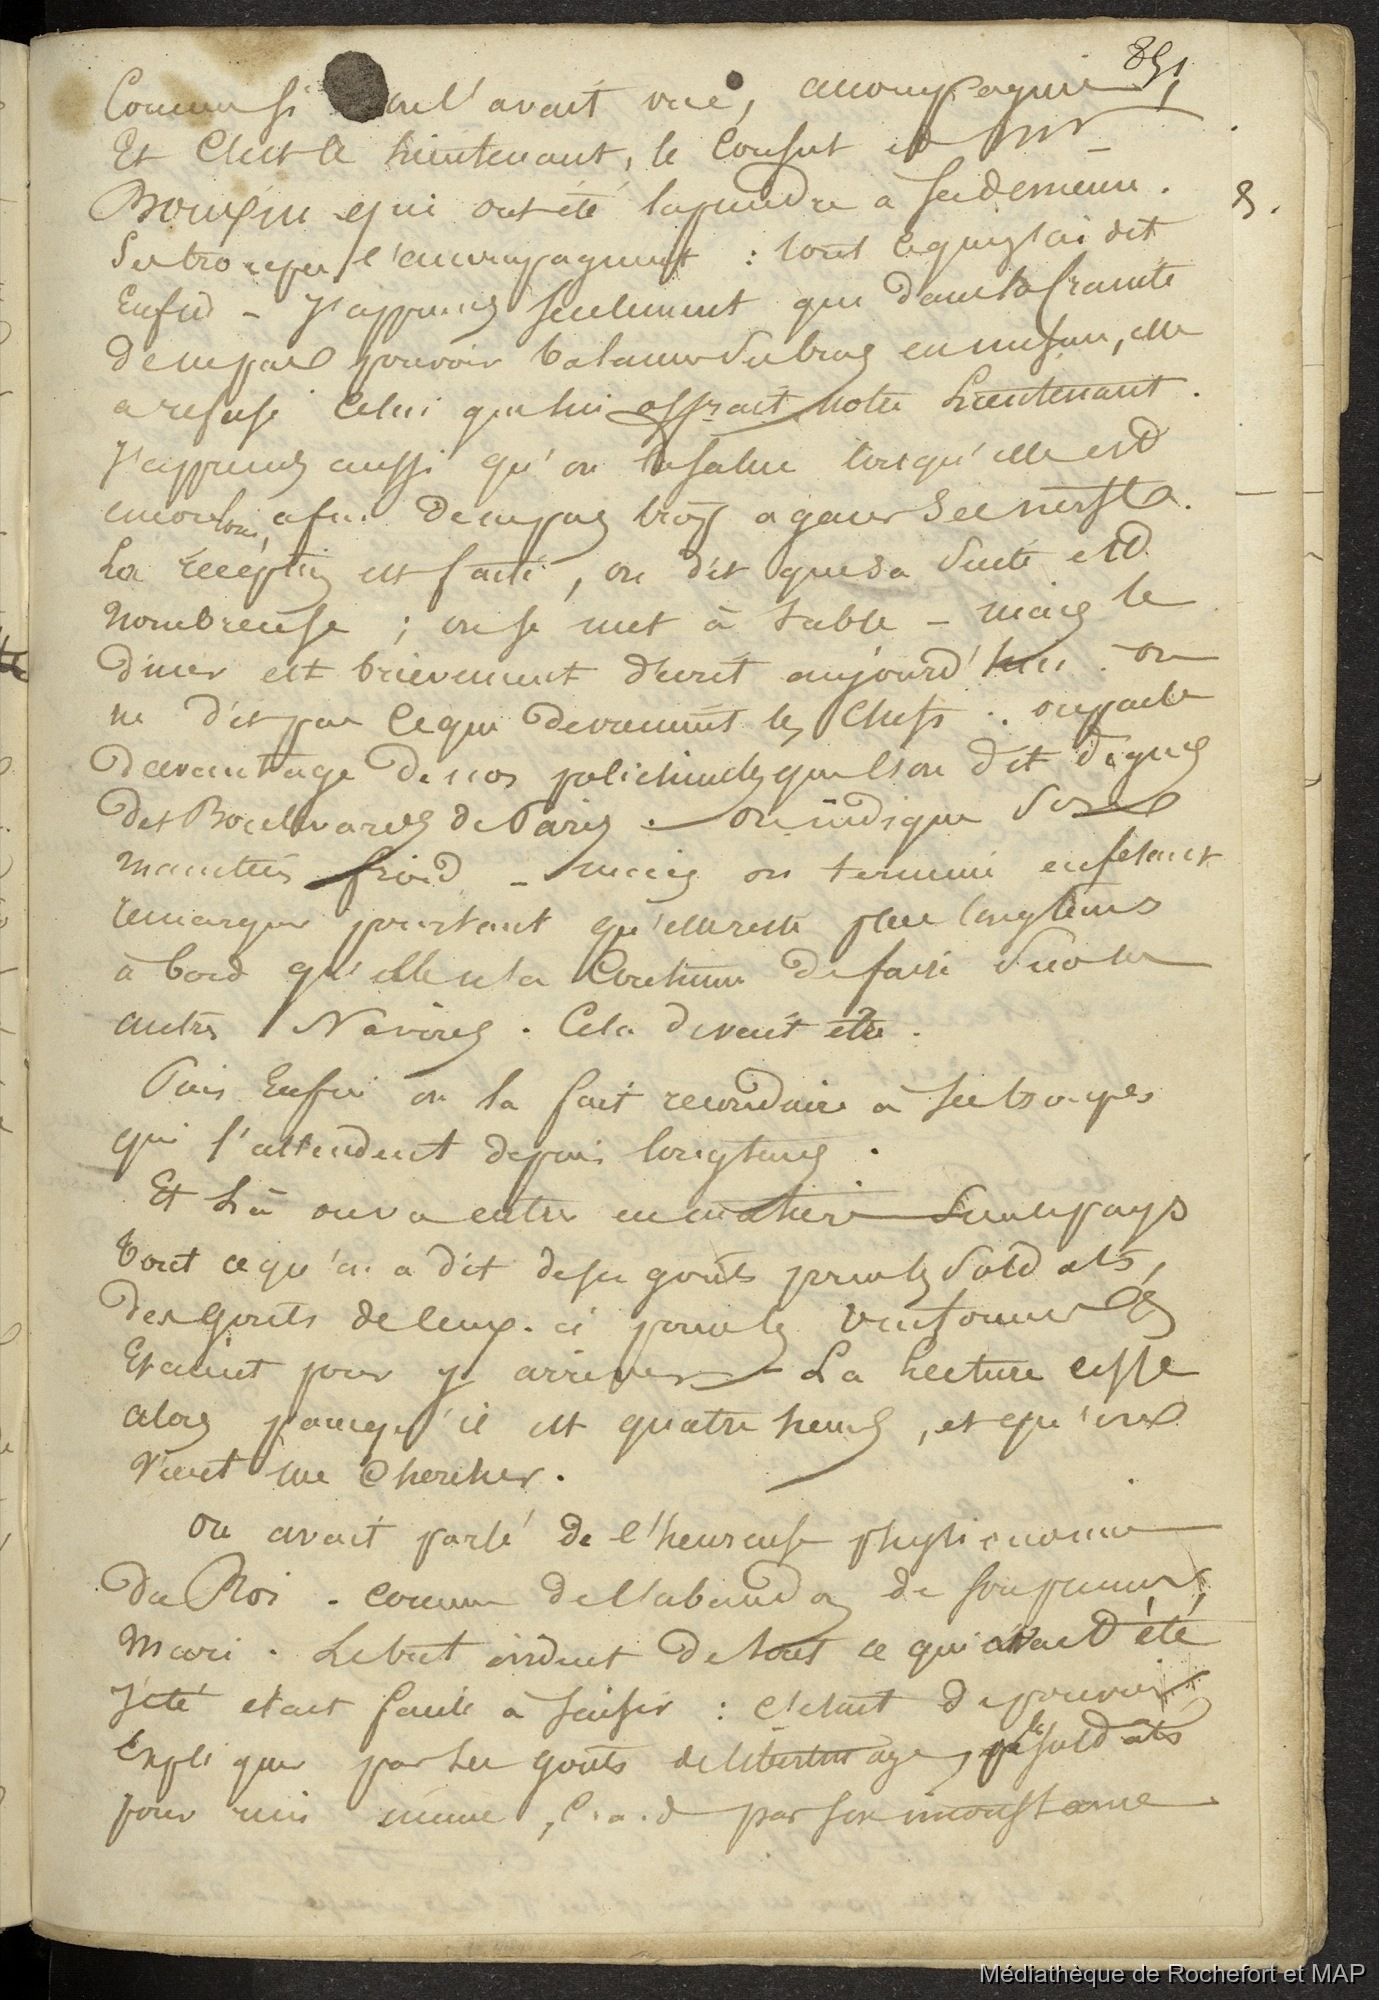 851
Comme si on l'avait vue, accompagnée
Et C'est le Lieutenant, le Consul et Mr
qui ont été la prendre à sa demeure.
Ses troupes l'accompagnent : tout ce qui s'ai dit
Enfin – J'apprends seulement que dans la crainte
de ne pas pouvoir balancer Ses bras en mesure, elle
a refusé Celui que lui offrait notre Lieutenant.
J'apprends aussi qu'on la salue lorsqu'elle est
encore loin, afin de ne pas trop agacer Ses nerfs.
La réception est faite, on dit que sa Suite est
Nombreuse ; on se met à table – mais le
diner est brievement décrit aujourd'hui. on
ne dit pas ce que devennient les Chefs .. on parle
davantage de nos polichinels que l'on dit dignes
des Boulevards de Paris. – on indique Son
maintien froid – mais on termine en fesant
remarquer pourtant qu'elle reste plus longtems
à bord qu'elle n'a Coutume de faire Sur les
autres Navires. Cela devait être.
Puis Enfin on la fait reconduire à ses troupes
qui l'attendent depuis longtems.
Et Là on va entrer en matière Sur le pays
Tout ce qu'on a dit de ses goûts pour les Soldats,
des goûts de ceux-ci pour les
Etaient pour y arriver – La Lecture cesse
alors parcequ'il est quatre heures, et qu'on
Vient me Chercher.
On avait parlé de l'heureuse physionomie
du Roi. comme de l'abandon de son premier
Mari. Le but évident de tout ce qui avait été
jeté était facile à saisir : c'etait de pouvoir
Expliquer par ses goûts de libertinage, les soldats
pour mis même, C.a.d par son inconstance
8.
Médiathèque de Rochefort et MAP